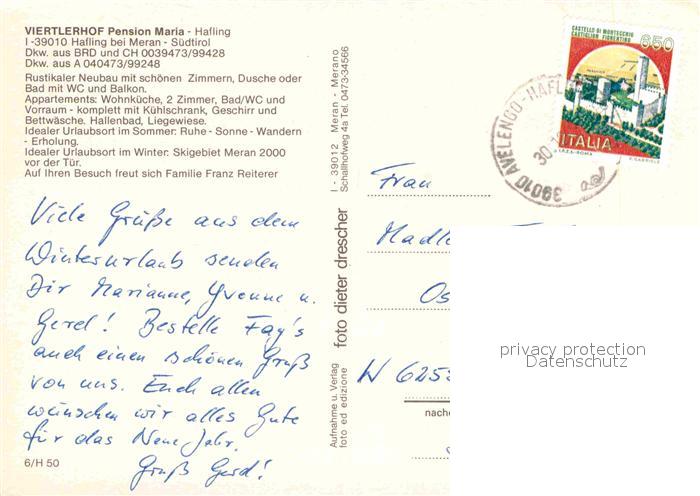 VIERTLERHOF Pension Maria - Hafling
I -39010 Hafling bei Meran - Südtirol
Dkw. aus BRD und CH 0039473/99428
Dkw. aus A 040473/99248
Rustikaler Neubau mit schönen Zimmern, Dusche oder
Bad mit WC und Balkon.
Appartements: Wohnküche, 2 Zimmer, Bad/WC und
Vorraum - komplett mit Kühlschrank, Geschirr und
Bettwäsche. Hallenbad, Liegewiese.
Idealer Urlaubsort im Sommer: Ruhe - Sonne - Wandern
- Erholung.
Idealer Urlaubsort im Winter: Skigebiet Meran 2000
vor der Tür.
Auf Ihren Besuch freut sich Familie Franz Reiterer
Viele Grüße aus dem
Winterurlaub senden
Dir Marianne, Yvonne u.
Gerd! Bestelle Fay's
auch einen schönen Gruß
von uns. Euch allen
wünschen wir alles Gute
für das Neue Jahr.
Gruß Gerd!
6/H 50
I - 39012 Meran - Merano
Schallhofweg 4a Tel. 0473-34566
foto dieter drescher
Aufnahme u. Verlag
foto ed edizione
CASTELLO DI MONTECCHIO
CASTIGLION FIORENTINO
650
ITALIA
I.P.Z.S.-ROMA
39010 AVELENGO - HAFL
30.
Frau
Madl
Os
W 6253
nache
privacy protection
Datenschutz